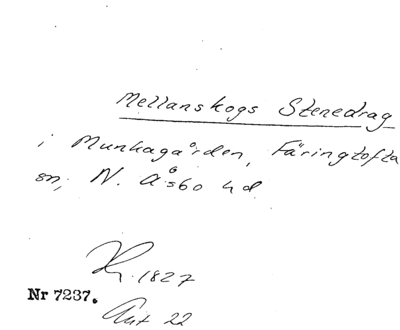 Mellanskogs Stenedrag
i Munkagården, Färingtofta
sn, N. Åsbo hd
R. 1827
Nr 7237.
Aut 22